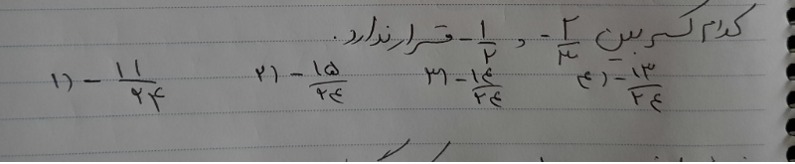 کدام کسر بین -۲/۳ و -۱/۲ قرار ندارد.
۱) -۱۱/۲۴ ۲) -۱۵/۲۴ ۳) -۱۴/۲۴ ۴) -۱۳/۲۴